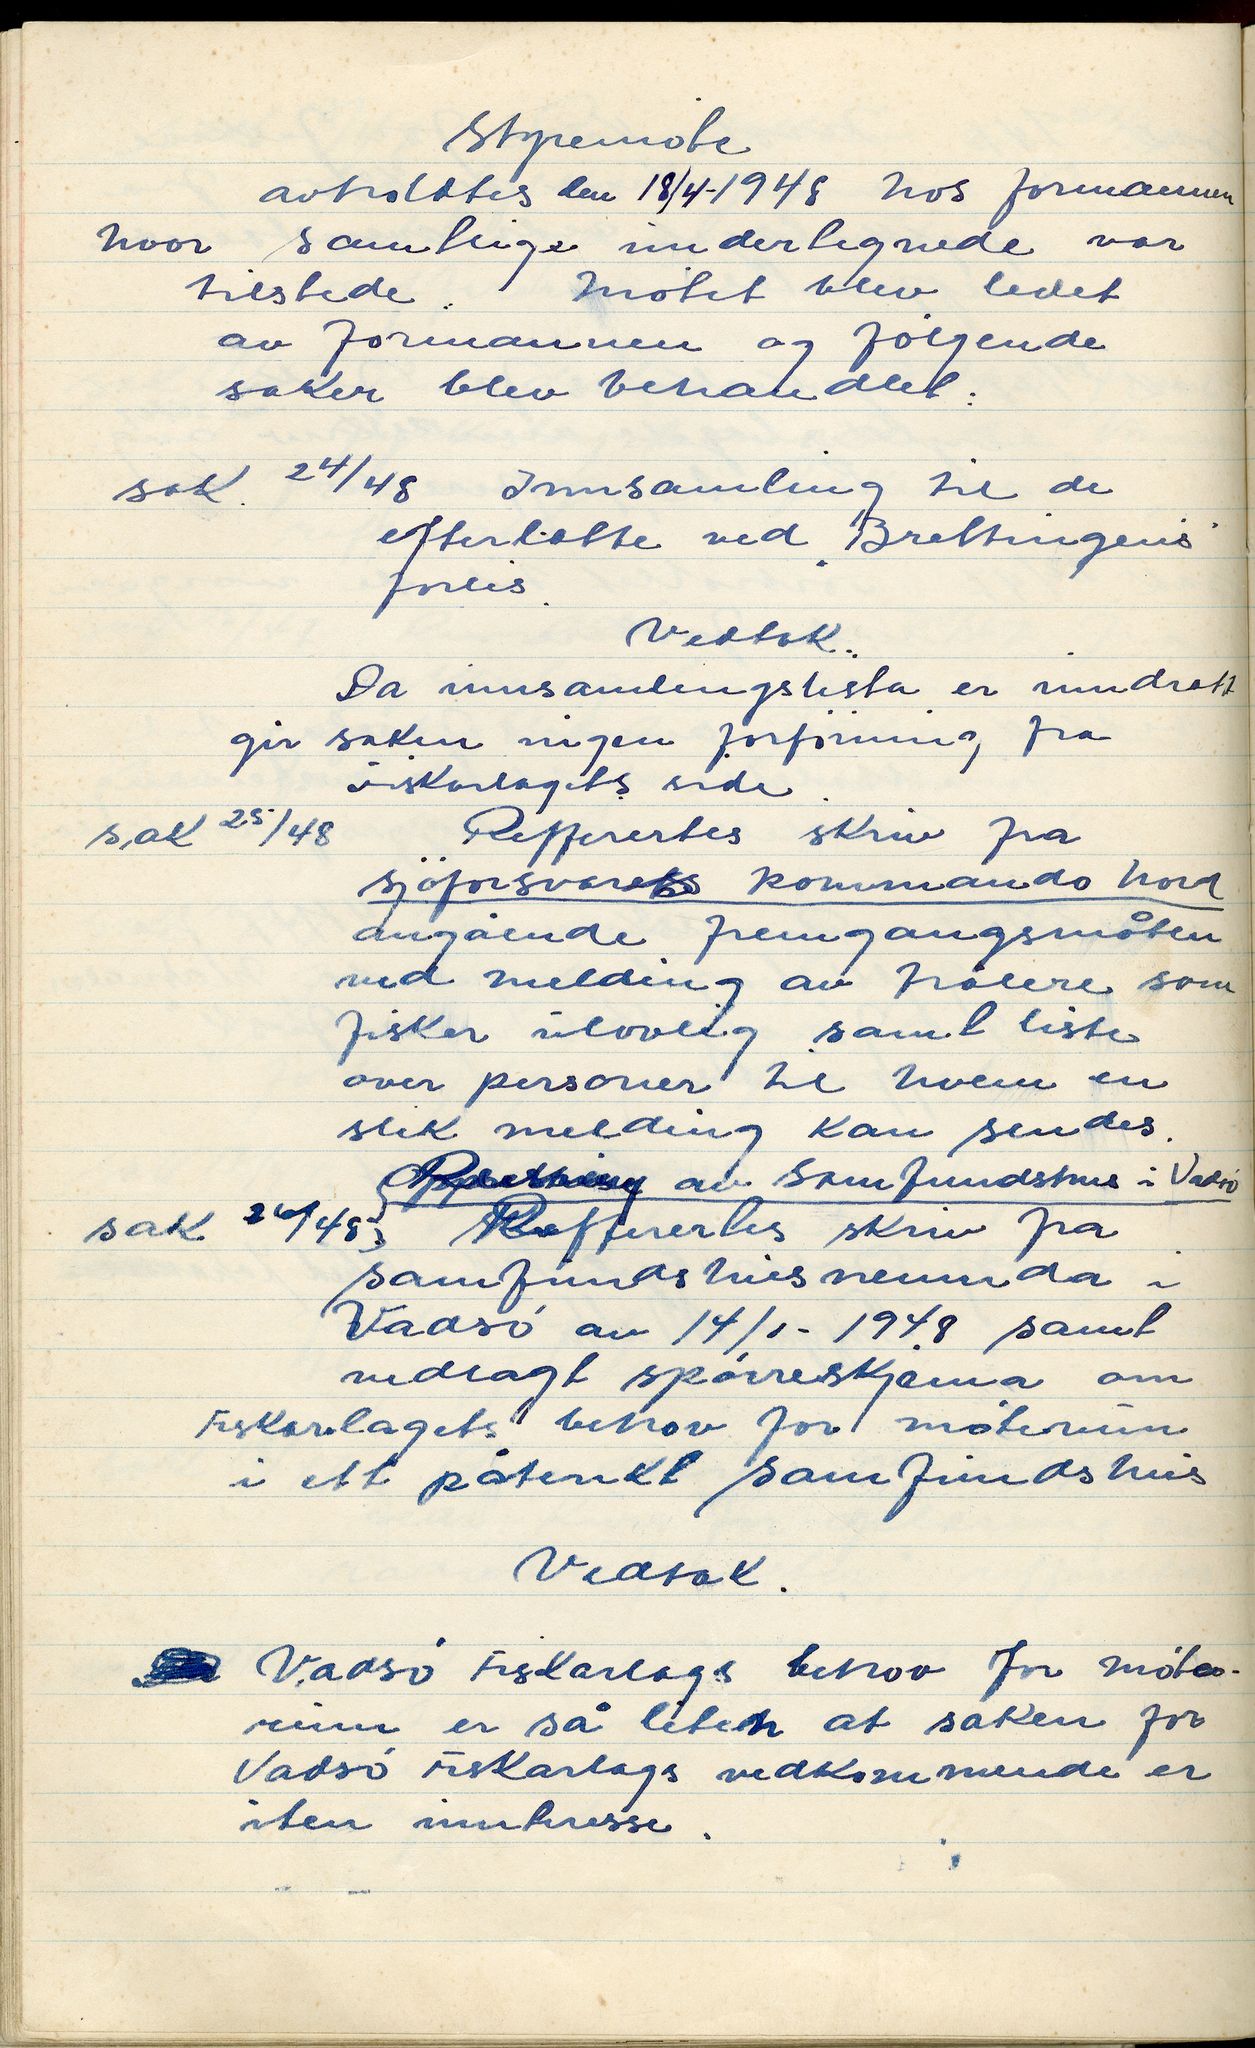 Styremöte
avholdtes den 18/4-1948 hos formannen
hvor samtlige undertegnede var
tilstede. Mötet blev ledet
av formannen og fölgende
saker blev behandlet:
sak 24/48 Innsamling til de
efterlatte ved "Brettingens"
forlis.
Vedtak.
Da innsamlingslista er inndratt
gir saken ingen forföining fra
Fiskarlagets side.
sak 25/48 Refferertes skriv fra
sjöforsvarets kommando Nord
angående fremgangsmåten
ved melding av trålere som
fisker ulovlig samt liste
over personer til hvem en
slik melding kan sendes.
Oppretting av Samfundshus i Vadsö
sak 26/48 Refferertes skriv fra
samfundshusnemnda i
Vadsö av 14/1-1948 samt
vedlagt spörreskjema om
Fiskarlagets behov for möterum
i ett påtenkt samfundshus
Vedtak.
Vadsö Fiskarlags behov for möte-
rum er så liten at saken for
Vadsö Fiskarlags vedkommende er
uten inntresse.